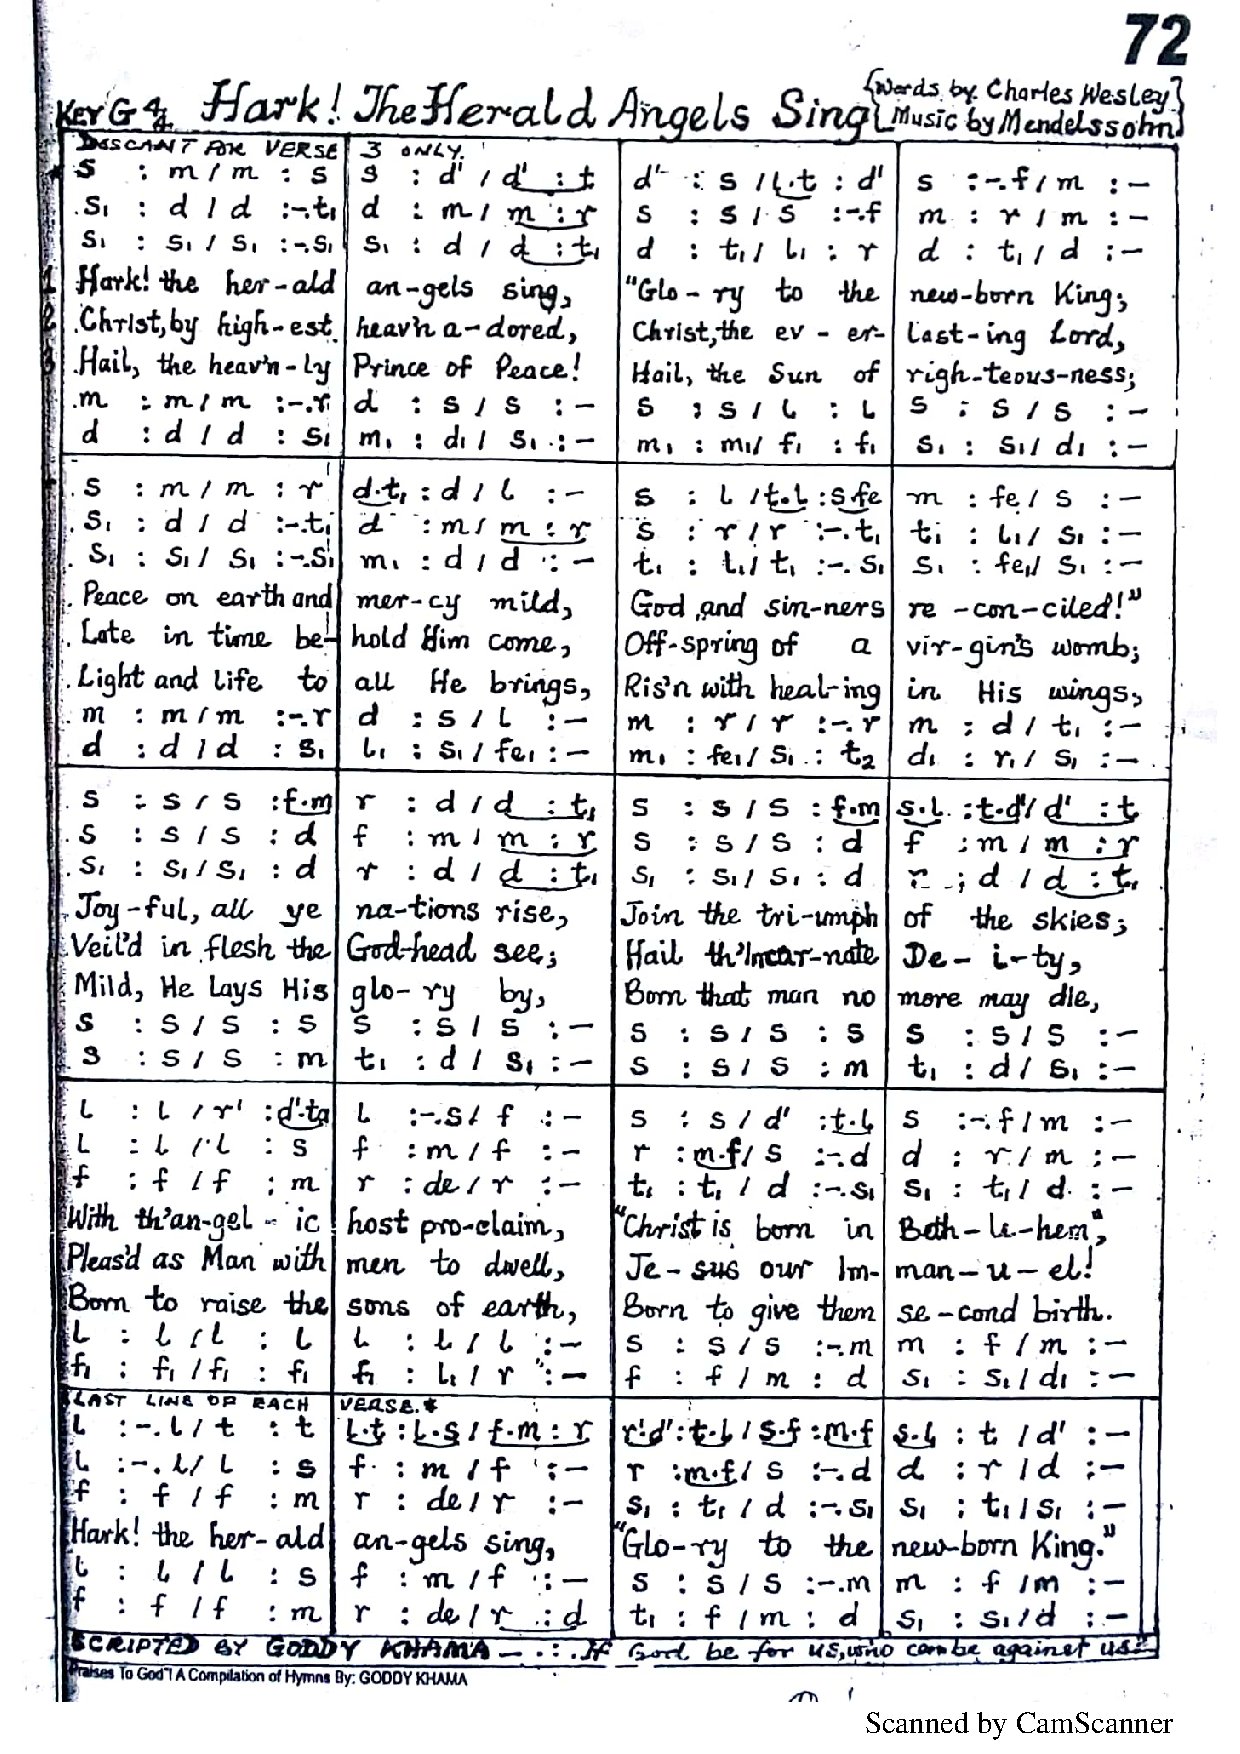 72
KEY G 4/4 Hark! The Herald Angels Sing {Words by Charles Wesley}
{Music by Mendelssohn}
DESCANT FOR VERSE 3 ONLY.
s : m / m : s | s : d' / d' : t | d' : s / l.t : d' | s :-.f / m : –
s₁ : d / d :-.t₁ | d : m / m : r | s : s / s :-.f | m : r / m : –
s₁ : s₁ / s₁ :-.s₁ | s₁ : d / d : t₁ | d : t₁ / l₁ : r | d : t₁ / d : –
1 Hark! the her-ald an-gels sing, "Glo-ry to the new-born King;
2 Christ, by high-est heav'n a-dored, Christ, the ev-er- Last-ing Lord,
3 Hail, the heav'n-ly Prince of Peace! Hail, the Sun of righ-teous-ness;
m : m / m :-.r | d : s / s : – | s : s / l : l | s : s / s : –
d : d / d : s₁ | m₁ : d₁ / s₁ : – | m₁ : m₁ / f₁ : f₁ | s₁ : s₁ / d₁ : –
s : m / m : r | d.t₁ : d / l : – | s : l / t.l : s.fe | m : fe / s : –
s₁ : d / d :-.t₁ | d : m / m : r | s : r / r :-.t₁ | t₁ : l₁ / s₁ : –
s₁ : s₁ / s₁ :-.s₁ | m₁ : d / d : – | t₁ : l₁ / t₁ :-.s₁ | s₁ : fe₁ / s₁ : –
Peace on earth and mer-cy mild, God and sin-ners re-con-ciled!"
Late in time be- hold Him come, Off-spring of a vir-gin's womb;
Light and life to all He brings, Ris'n with heal-ing in His wings,
m : m / m :-.r | d : s / l : – | m : r / r :-.r | m : d / t₁ : –
d : d / d : s₁ | l₁ : s₁ / fe₁ : – | m₁ : fe₁ / s₁ : t₂ | d₁ : r₁ / s₁ : –
s : s / s : f.m | r : d / d : t₁ | s : s / s : f.m | s.l : t.d' / d' : t
s : s / s : d | f : m / m : r | s : s / s : d | f : m / m : r
s₁ : s₁ / s₁ : d | r : d / d : t₁ | s₁ : s₁ / s₁ : d | r : d / d : t₁
Joy-ful, all ye na-tions rise, Join the tri-umph of the skies;
Veil'd in flesh the God-head see; Hail th'Incar-nate De-i-ty,
Mild, He lays His glo-ry by, Born that man no more may die,
s : s / s : s | s : s / s : – | s : s / s : s | s : s / s : –
s : s / s : m | t₁ : d / s₁ : – | s : s / s : m | t₁ : d / s₁ : –
l : l / r' : d'.ta | l :-.s / f : – | s : s / d' : t.l | s :-.f / m : –
l : l / l : s | f : m / f : – | r : m.f / s :-.d | d : r / m : –
f : f / f : m | r : de / r : – | t₁ : t₁ / d :-.s₁ | s₁ : t₁ / d : –
With th'an-gel-ic host pro-claim, "Christ is born in Beth-le-hem,"
Pleas'd as Man with men to dwell, Je-sus our Im- man-u-el!
Born to raise the sons of earth, Born to give them se-cond birth.
l : l / l : l | l : l / l : – | s : s / s :-.m | m : f / m : –
f₁ : f₁ / f₁ : f₁ | f₁ : l₁ / r : – | f : f / m : d | s₁ : s₁ / d₁ : –
LAST LINE OF EACH VERSE.
l :-.l / t : t | l.t : l.s / f.m : r | r'.d' : t.l / s.f : m.f | s.l : t / d' : –
l :-.l / l : s | f : m / f : – | r : m.f / s :-.d | d : r / d : –
f : f / f : m | r : de / r : – | s₁ : t₁ / d :-.s₁ | s₁ : t₁ / s₁ : –
Hark! the her-ald an-gels sing, "Glo-ry to the new-born King."
l : l / l : s | f : m / f : – | s : s / s :-.m | m : f / m : –
f : f / f : m | r : de / r : d | t₁ : f / m : d | s₁ : s₁ / d : –
SCRIPTED BY GODDY KHAMA – . : . If God be for us, who can be against us"
Praises To God"! A Compilation of Hymns By: GODDY KHAMA
Scanned by CamScanner